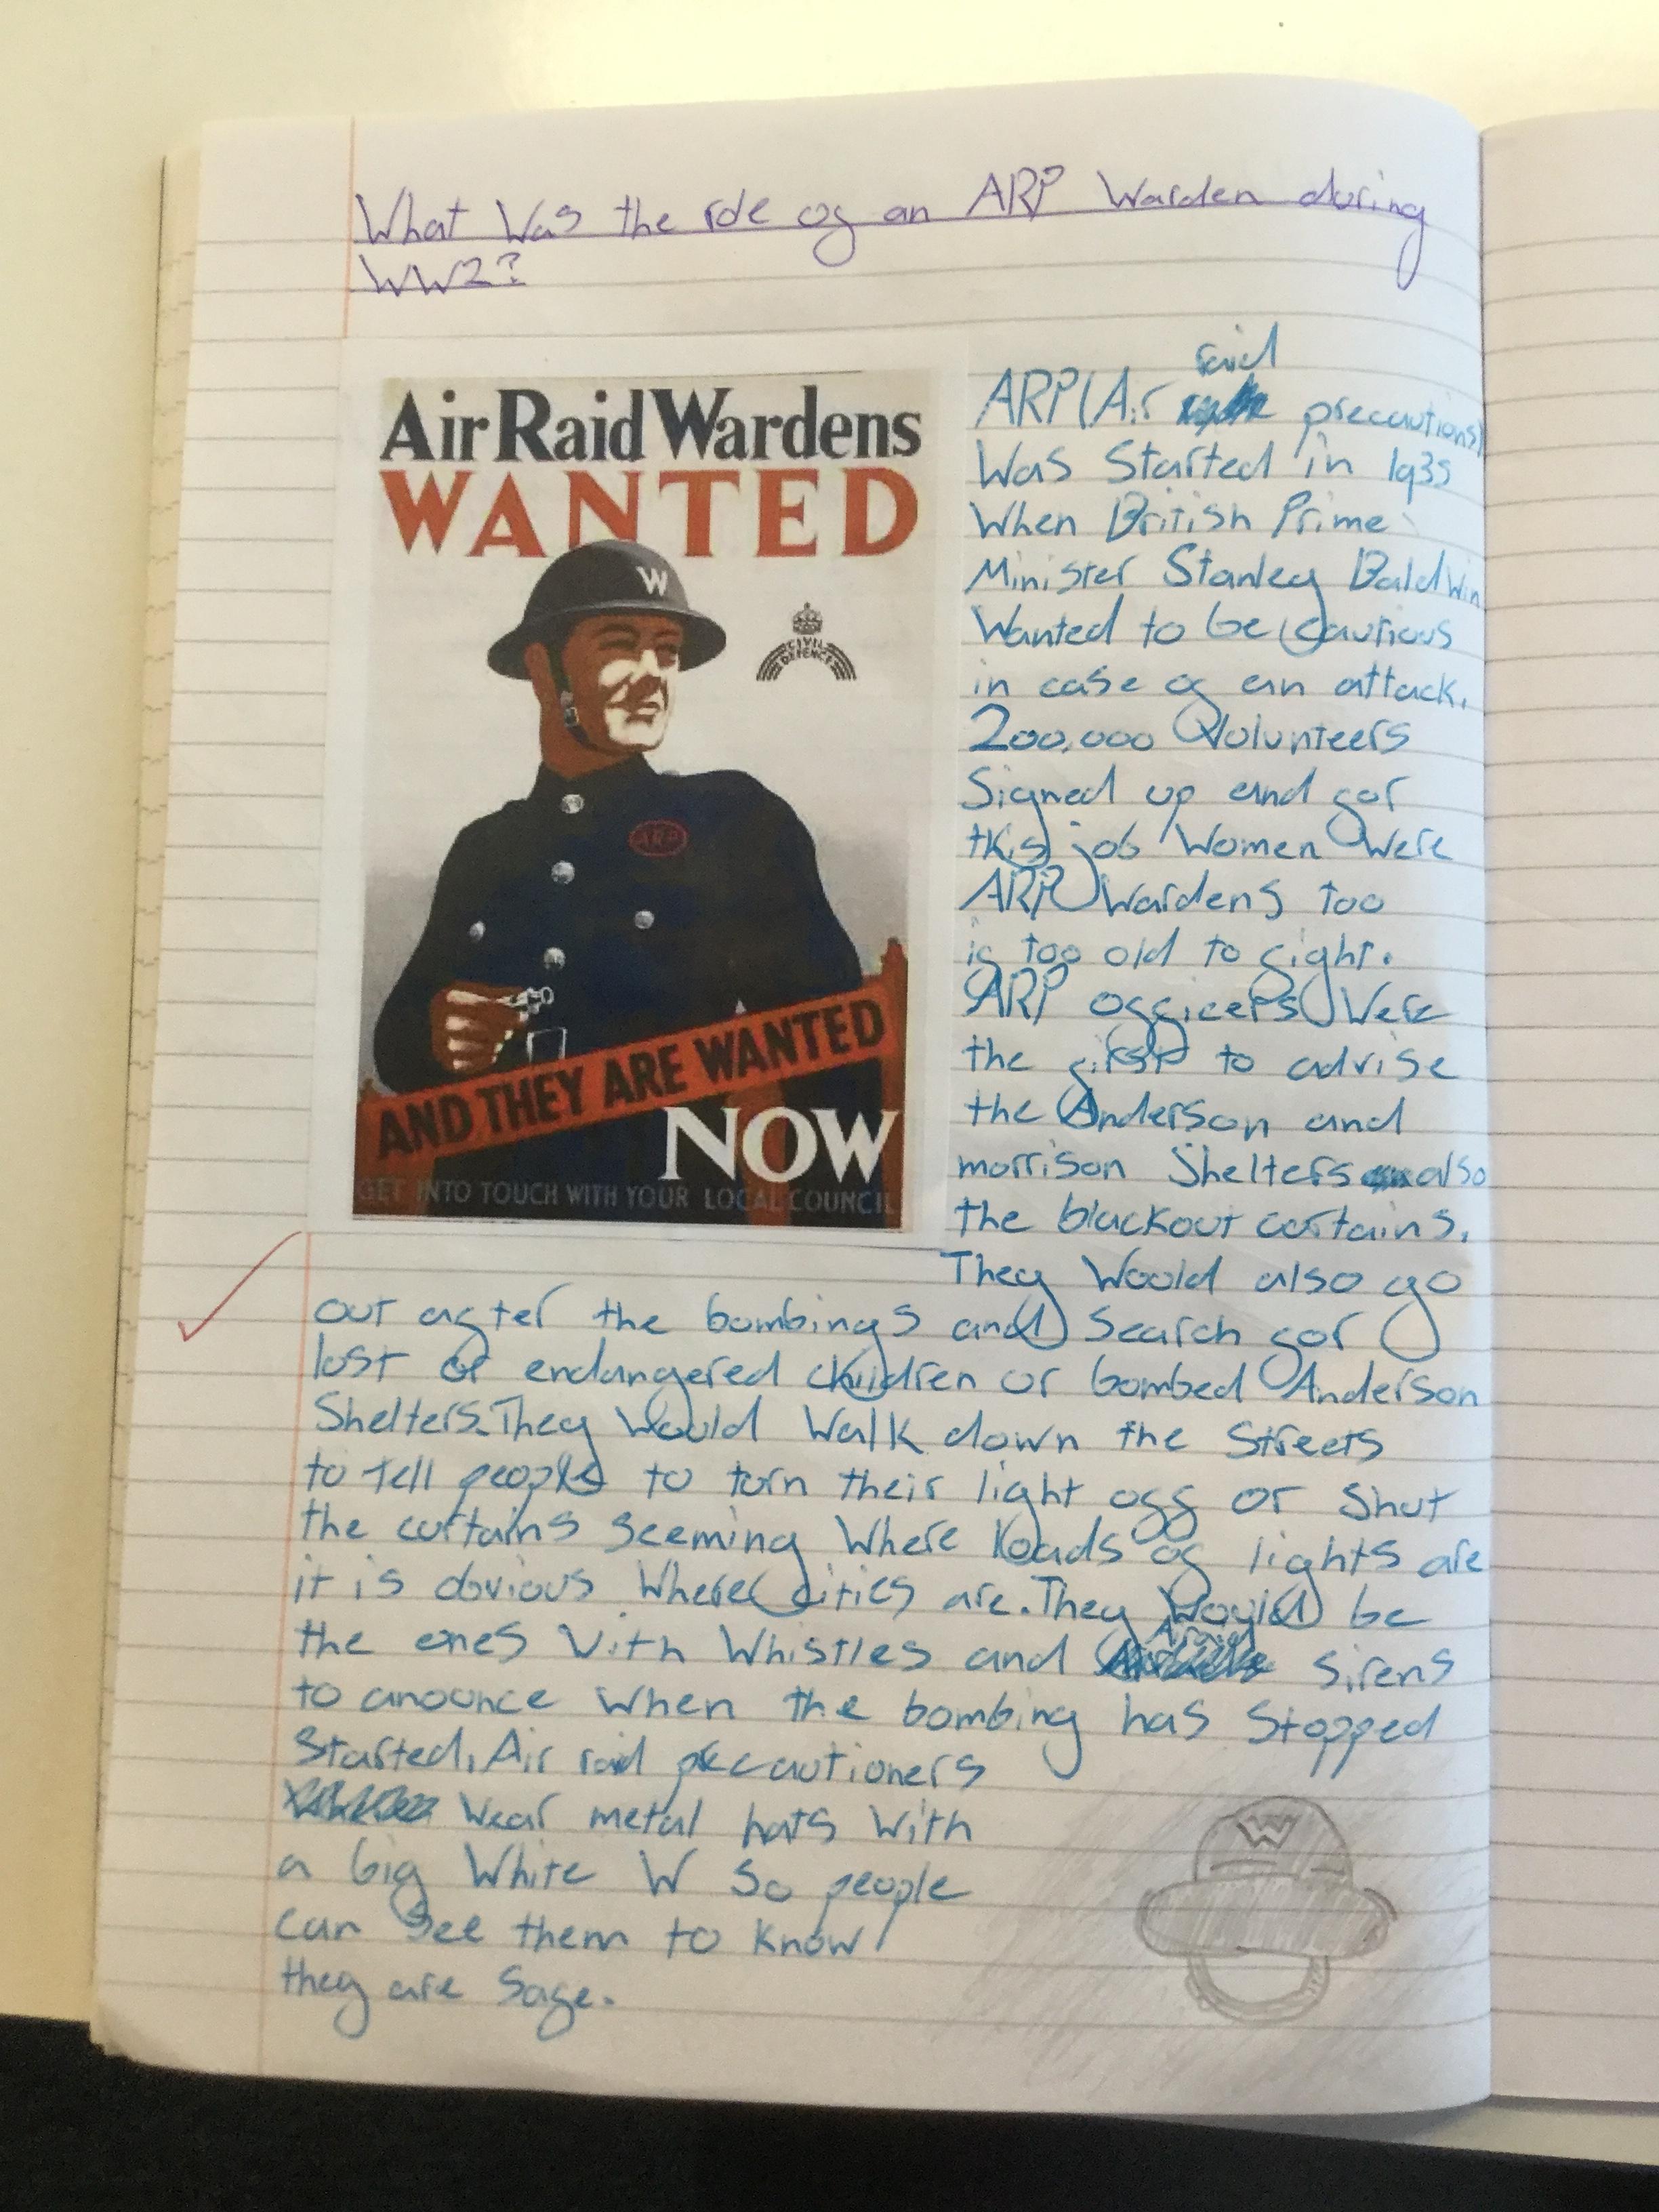 What was the role of an ARP Warden during
WW2?
Air Raid Wardens
WANTED
W
CIVIL
DEFENCE
ARP
AND THEY ARE WANTED
NOW
GET INTO TOUCH WITH YOUR LOCAL COUNCIL
raid
ARP (Air precautions)
Was Started in 1935
When British Prime
Minister Stanley Baldwin
Wanted to be cautious
in case of an attack.
200,000 Volunteers
Signed up and for
this job Women Were
ARP Wardens too
if too old to fight.
ARP officers Were
the first to advise
the Anderson and
morrison Shelters also
the blackout curtains.
They Would also go
out after the bombings and search for
lost or endangered children or bombed Anderson
Shelters. They Would Walk down the Streets
to tell people to torn their light off or Shut
the curtains seeming Where loads of lights are
it is obvious Where cities are. They Would be
the ones With Whistles and sirens
to anounce when the bombing has stopped
Started. Air raid precautioners
Wear metal hats With
a big White W So people
can See them to know
they are Safe.
W